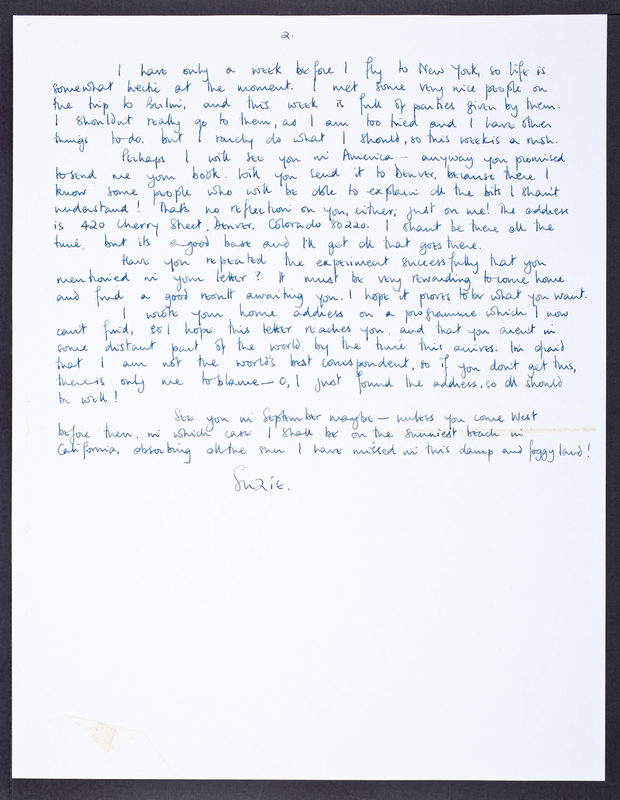 2.
I have only a week before I fly to New York, so life is
somewhat hectic at the moment. I met some very nice people on
the trip to Berlin, and this week is full of parties given by them.
I shouldn't really go to them, as I am too tired and I have other
things to do, but I rarely do what I should, so this week is a rush.
Perhaps I will see you in America — anyway you promised
to send me your book. Will you send it to Denver, because there I
know some people who will be able to explain all the bits I shan't
understand! That's no reflection on you, either, just on me! The address
is 420 Cherry Street, Denver, Colorado 80220. I shan't be there all the
time, but its a good base and I'll get all that goes there.
Have you repeated the experiment successfully that you
mentioned in your letter? It must be very rewarding to come home
and find a good result awaiting you. I hope it proves to be what you want.
I wrote your home address on a programme which I now
can't find, so I hope this letter reaches you, and that you aren't in
some distant part of the world by the time this arrives. I'm afraid
that I am not the world's best correspondent, so if you don't get this,
there is only me to blame — O, I just found the address, so all should
be well!
See you in September maybe — unless you come West
before then, in which case I shall be on the sunniest beach in
California, absorbing all the sun I have missed in this damp and foggy land!
Suzie.